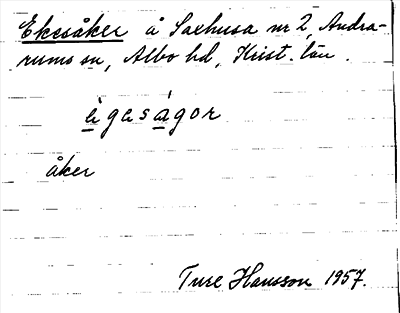 Ekesåker å Saxhusa nr 2, Andra-
rums sn, Albo hd, Krist. län.
ègaságor
åker
Ture Hansson 1957.